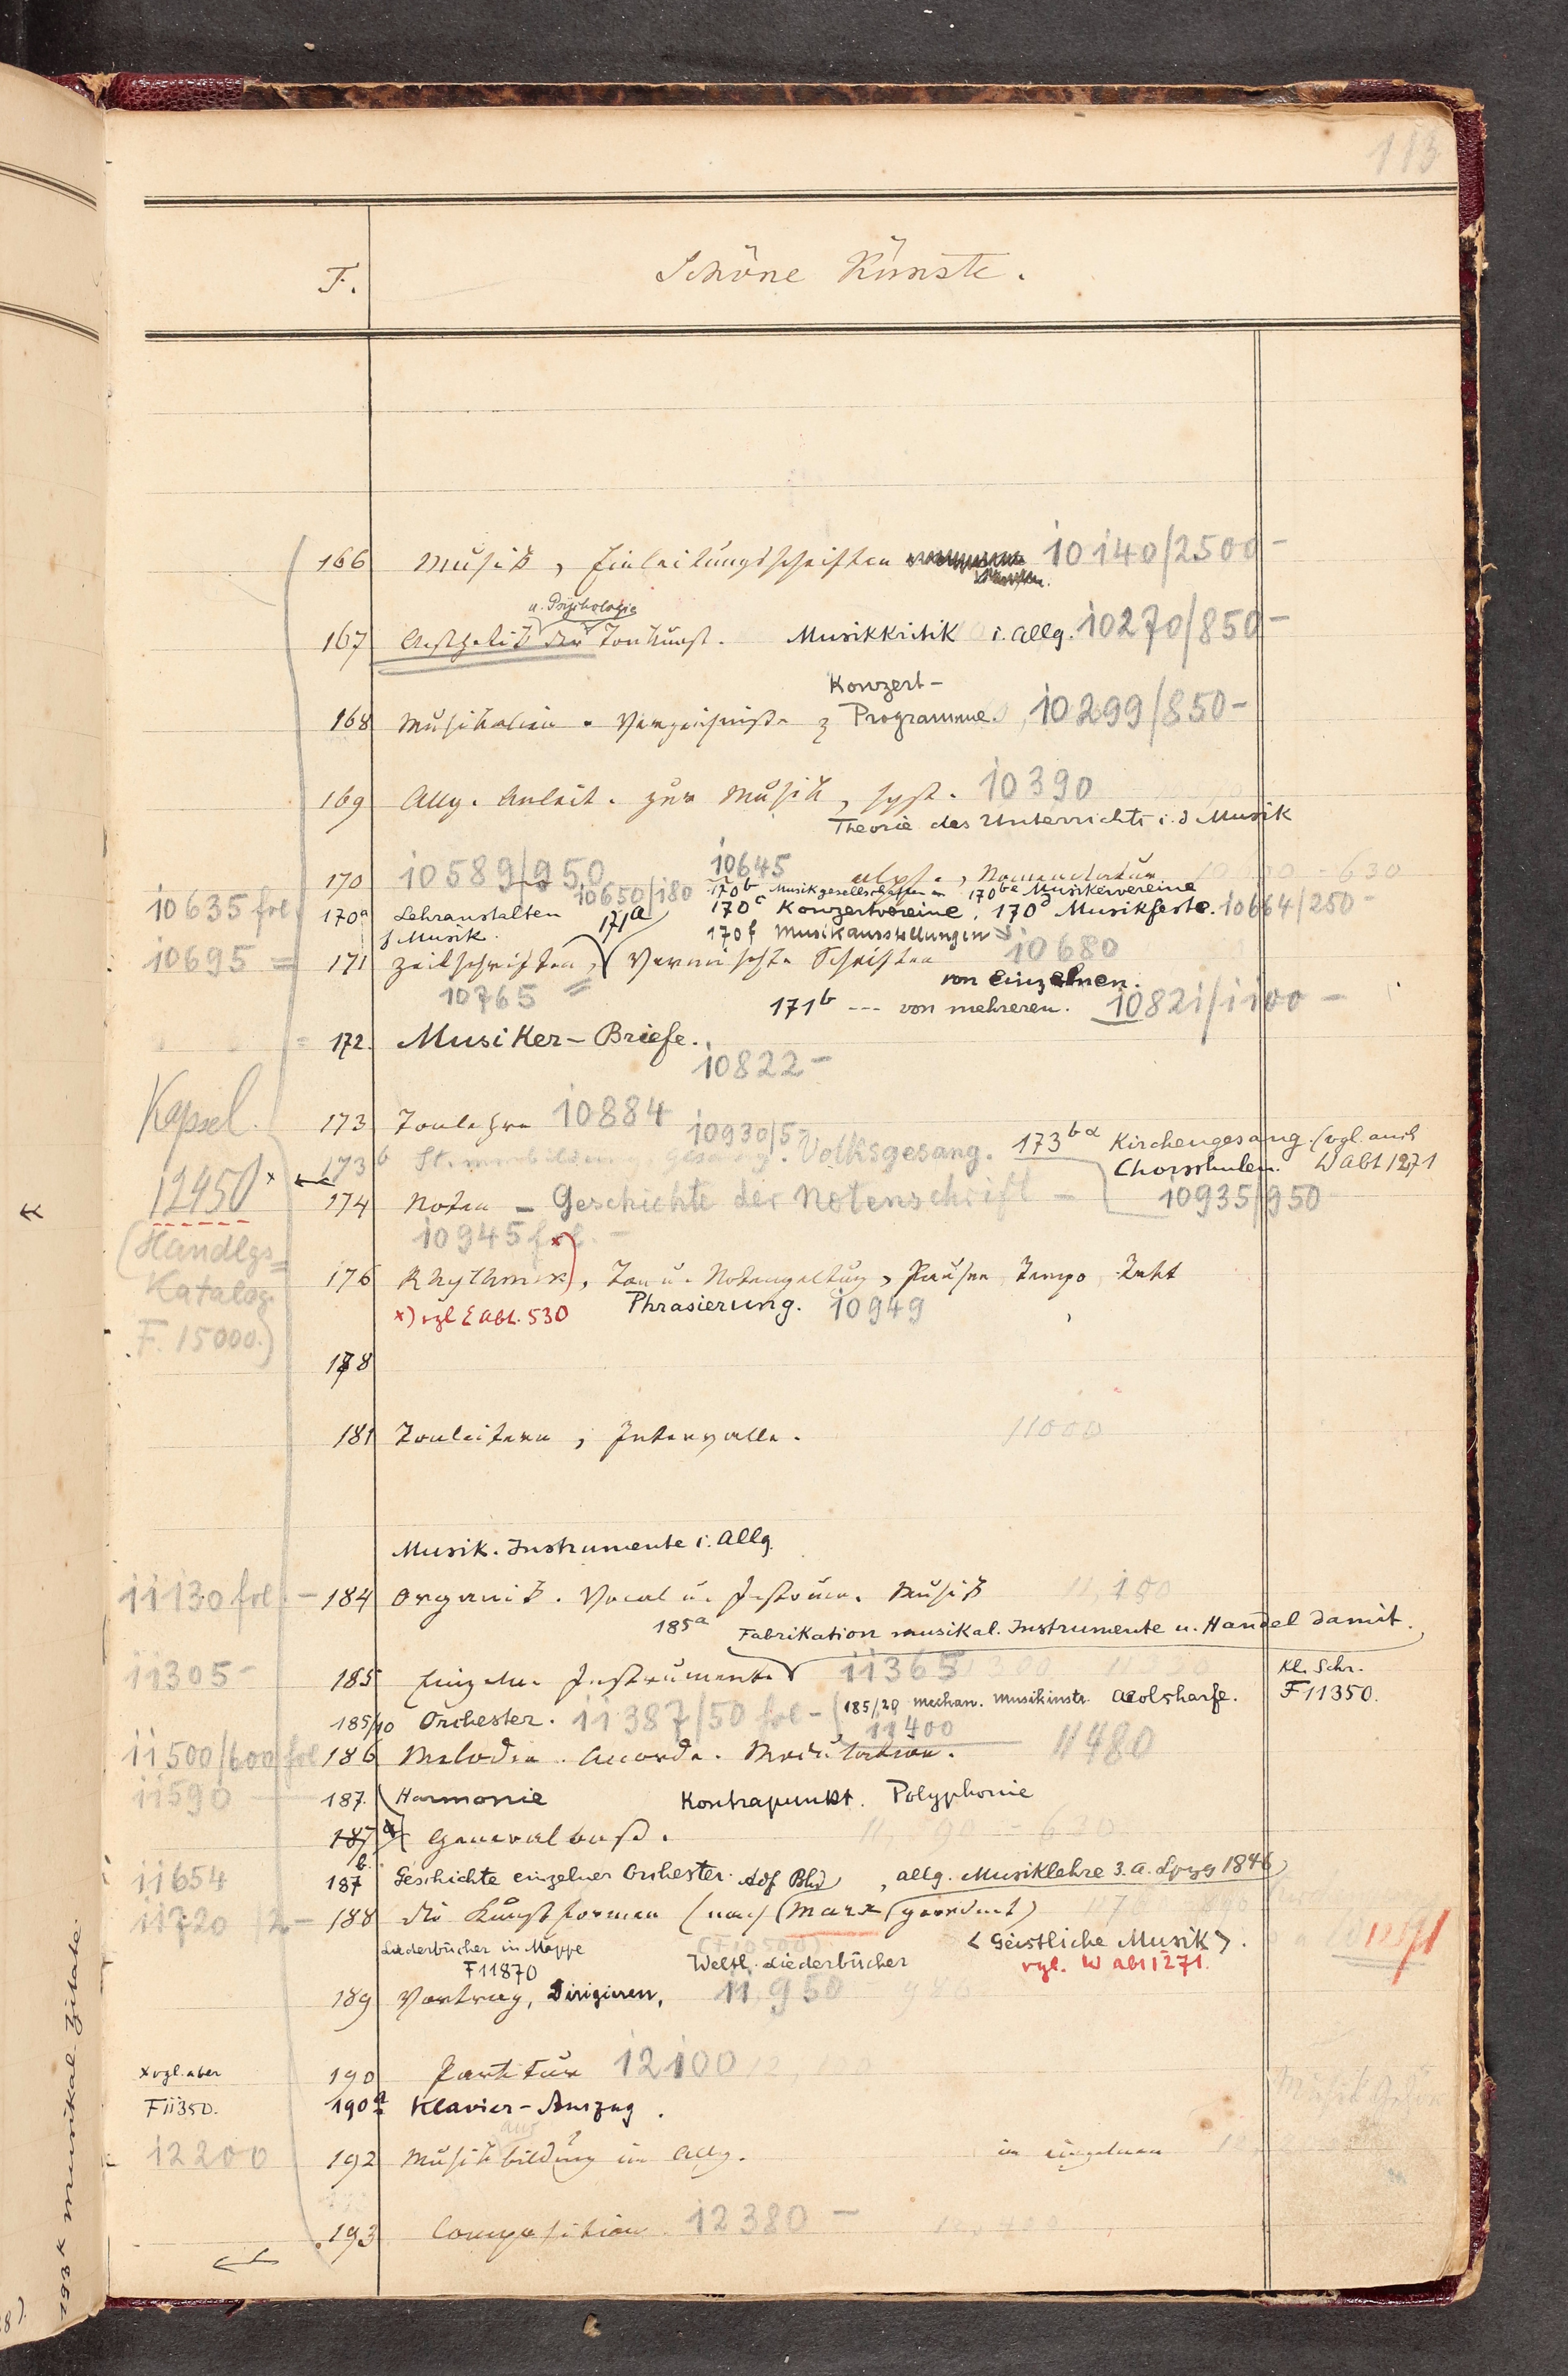 113
F. Schöne Künste.
166 Musik, Einleitungsschriften 10140/2500-
u. Psychologie
167 Aesthetik der Tonkunst. Musikkritik i. Allg. 10270/850-
Konzert-
168 Musikalien-Verzeichnisse Programme. 10299/850-
169 Allg. Anleit. zur Musik, syst. 10390
Theorie des Unterrichts i. d Musik
170 10589/950 10645 alph., Nomenclatur 630
10650/180 170b Musikgesellschaften 170ba Musikervereine
10635 fol. 170a Lehranstalten 171a 170c Konzertvereine, 170d Musikfeste. 10664/250-
f Musik. 170f Musikausstellungen
10695 = 171 Zeitschriften, Vermischte Schriften 10680
von einzelnen.
10765 = 171b --- von mehreren. 10821/1100 -
172. Musiker-Briefe.
10822-
Kapsel. 173 Tonlehre 10884
10930/5-
173b Stimmbildung, Gesang. Volksgesang. 173bα Kirchengesang. (vgl. auch
Chorschulen. W Abt 1271
12450 x 174 Noten - Geschichte der Notenschrift - 10935/950
10945 fol. -
(Handlgs=
Katalog
F. 15000.)
176 Rhythmik x), Ton u. Notengeltung, Pausen Tempo Takt
x) vgl Σ Abt. 530 Phrasierung. 10949
178
181 Tonleitern, Intervalle. 11000
Musik. Instrumente i. Allg.
11130 fol. - 184 Organik. Vocal u. Instrum. Musik 11,100
185a Fabrikation musikal. Instrumente u. Handel damit.
11305- 185 Einzelne Instrumente 11365 Kl. Schr.
F 11350.
185/10 Orchester. 11387/50 fol - (185/20 mechan. Musikinstr. Aeolsharfe.
11400
11500/600 fol 186 Melodie. Accorde. Modulation. 11480
11590 187. Harmonie Kontrapunkt. Polyphonie
187 a Generalbass. 11,590 - 620
11654 187 b. Geschichte einzelner Orchester. Adf Bhd, allg. Musiklehre 3. A. Lpzg 1846)
11720 /2- 188 die Kunstformen (nach (Marx) geordnet)
Liederbücher in Mappe Weltl. Liederbücher < Geistliche Musik >.
F11870 vgl. W Abt 1271.
189 Vortrag, Dirigieren, 11,950
x vgl. aber 190 Partitur 12100
F 11350. 190a Klavier-Auszug.
aus
12200 192 Musikbildung im Allg. im einzelnen
193 Composition. 12380 -
193 k musikal. Zitate.